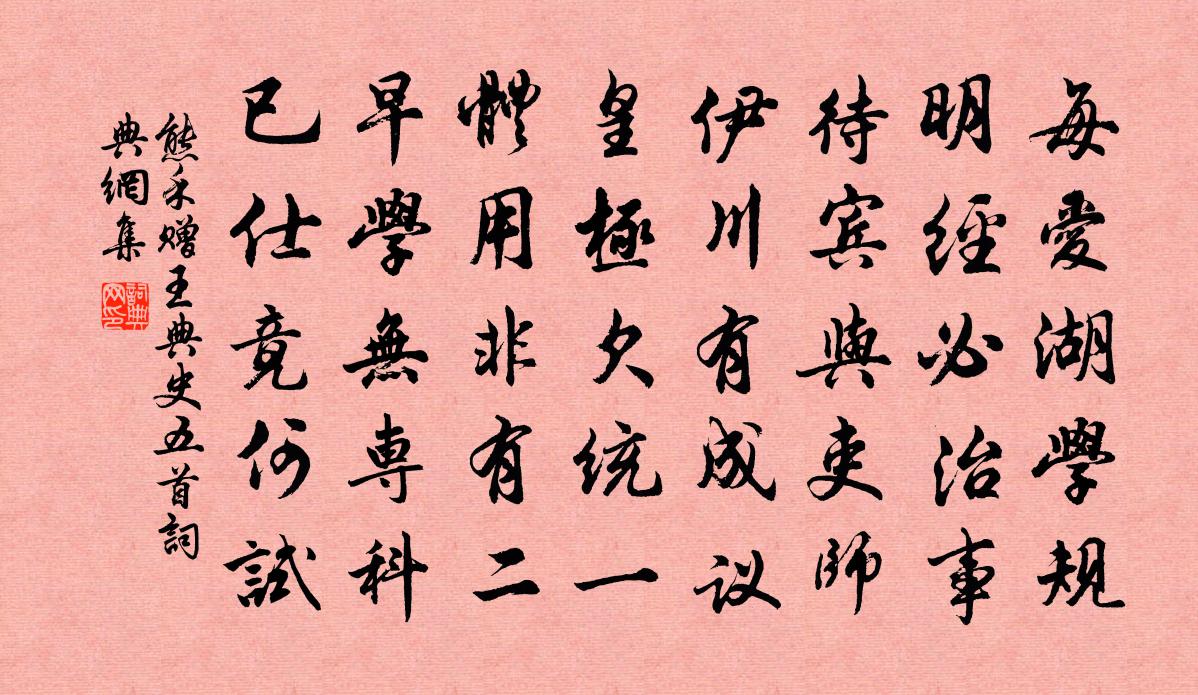 每愛湖學規
明經必治事
待賓與吏師
伊川有成议
皇極欠統一
體用非有二
早學無専科
已仕竟何試
熊禾赠王典史五首詞
典網集
詞典网印